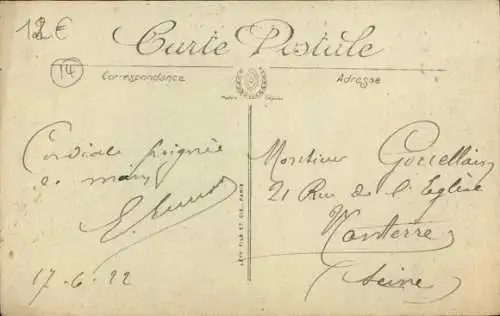 12 €
14
Carte Postale
Correspondance
Adresse
Cordiale poignée
de main
17-6-22
Monsieur
21 Rue de l'Eglise
Nanterre
(Seine)
LÉVY FILS ET CIE, PARIS